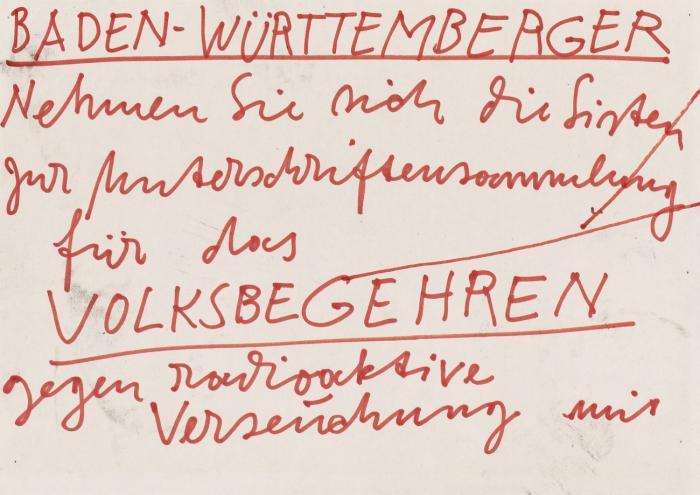 BADEN-WÜRTTEMBERGER
Nehmen Sie sich die Listen
zur Unterschriftensammlung
für das
VOLKSBEGEHREN
gegen radioaktive
Verseuchung mit